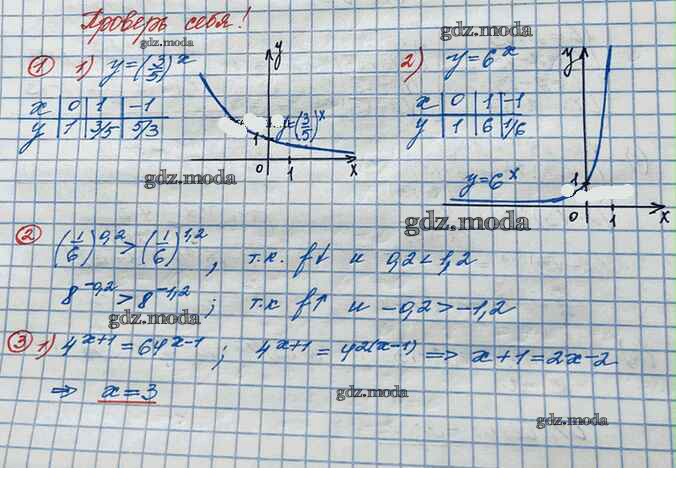 Проверь себя!
gdz.moda
gdz.moda
① 1) y=(3/5)^x
y
2) y=6^x
y
gdz.moda
x 0 1 -1
y 1 3/5 5/3
y=(3/5)^x
1
0 1 x
x 0 1 -1
y 1 6 1/6
gdz.moda
y=6^x
1
0 1 x
gdz.moda
gdz.moda
② (1/6)^0,2 > (1/6)^1,2, т.к. f↓ и 0,2<1,2
8^-0,2 > 8^-1,2; т.к f↑ и -0,2>-1,2
gdz.moda
③ 1) 4^x+1 = 64^x-1; 4^x+1 = 4^2(x-1) => x+1=2x-2
=> x=3
gdz.moda
gdz.moda